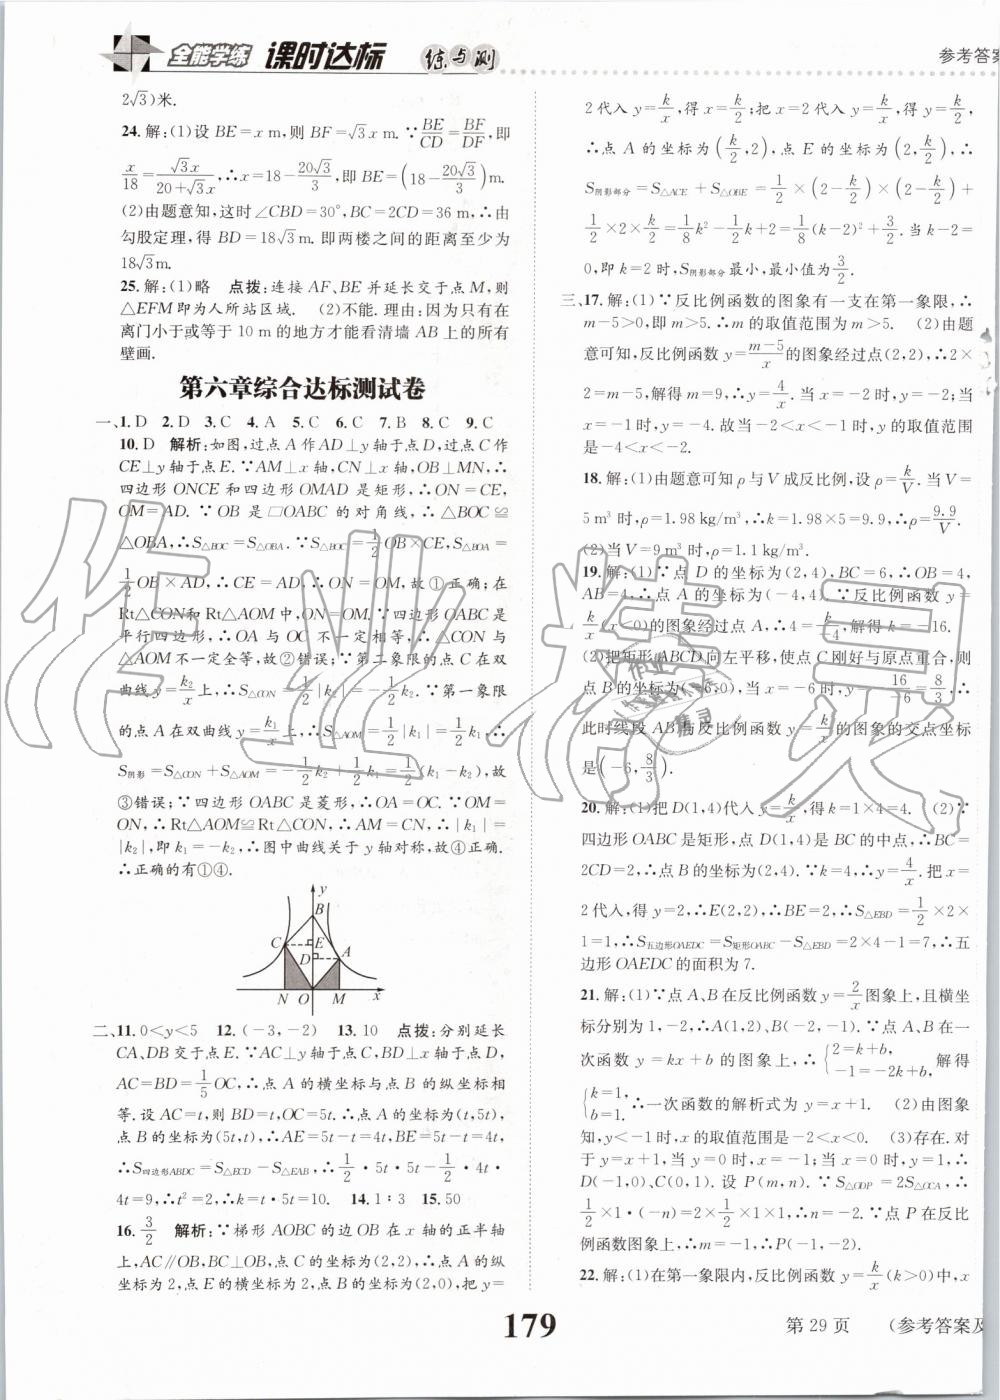 全能学练 课时达标 练与测
参考答案
2√3)米.
24. 解:(1)设 BE=x m,则 BF=√3x m.∵BE/CD=BF/DF,即
x/18=√3x/(20+√3x),∴x=18-20√3/3,即 BE=(18-20√3/3)m.
(2)由题意知,这时∠CBD=30°,BC=2CD=36 m,∴由
勾股定理,得 BD=18√3 m.即两楼之间的距离至少为
18√3 m.
25. 解:(1)略 点拨:连接 AF、BE 并延长交于点 M,则
△EFM 即为人所站区域. (2)不能.理由:因为只有在
离门小于或等于 10 m 的地方才能看清墙 AB 上的所有
壁画.
第六章综合达标测试卷
一、1. D 2. D 3. C 4. A 5. C 6. C 7. B 8. C 9. C
10. D 解析:如图,过点 A 作 AD⊥y 轴于点 D,过点 C 作
CE⊥y 轴于点 E.∵AM⊥x 轴,CN⊥x 轴,OB⊥MN,∴
四边形 ONCE 和四边形 OMAD 是矩形,∴ON=CE,
OM=AD.∵OB 是▱OABC 的对角线,∴△BOC≌
△OBA,∴S△BOC=S△OBA.∵S△BOC=1/2 OB×CE,S△BOA=
1/2 OB×AD,∴CE=AD,∴ON=OM,故①正确;在
Rt△CON和Rt△AOM中,ON=OM.∵四边形OABC是
平行四边形,∴OA 与 OC 不一定相等,∴△CON 与
△AOM 不一定全等,故②错误;∵第二象限的点 C 在双
曲线 y=k₂/x 上,∴S△CON=1/2|k₂|=-1/2k₂.∵第一象限
的点 A 在双曲线 y=k₁/x 上,∴S△AOM=1/2|k₁|=1/2k₁,∴
S阴影=S△CON+S△AOM=-1/2k₂+1/2k₁=1/2(k₁-k₂),故
③错误;∵四边形 OABC 是菱形,∴OA=OC.∵OM=
ON,∴Rt△AOM≌Rt△CON,∴AM=CN,∴|k₁|=
|k₂|,即 k₁=-k₂,∴图中曲线关于 y 轴对称,故④正确.
∴正确的有①④.
y
B
C E
D A
N O M x
二、11. 0<y<5 12. (-3,-2) 13. 10 点拨:分别延长
CA、DB 交于点 E.∵AC⊥y 轴于点 C,BD⊥x 轴于点 D,
AC=BD=1/5 OC,∴点 A 的横坐标与点 B 的纵坐标相
等.设 AC=t,则 BD=t,OC=5t.∴点 A 的坐标为(t,5t),
点 B 的坐标为(5t,t),∴AE=5t-t=4t,BE=5t-t=4t,
∴S四边形ABDC=S△ECD-S△EAB,∴1/2·5t·5t-1/2·4t·
4t=9,∴t²=2,∴k=t·5t=10. 14. 1∶3 15. 50
16. 3/2 解析:∵梯形 AOBC 的边 OB 在 x 轴的正半轴
上,AC∥OB,BC⊥OB,∴点 C 的坐标为(2,2),∴点 A 的纵
坐标为 2,点 E 的横坐标为 2,点 B 的坐标为(2,0),把 y=
2 代入 y=k/x,得 x=k/2;把 x=2 代入 y=k/x,得 y=k/2,
∴点 A 的坐标为(k/2,2),点 E 的坐标为(2,k/2),∴
S阴影部分=S△ACE+S△OBE=1/2×(2-k/2)×(2-k/2)+
1/2×2×k/2=1/8k²-1/2k+2=1/8(k-2)²+3/2.当 k-2=
0,即 k=2 时,S阴影部分最小,最小值为3/2.
三、17. 解:(1)∵反比例函数的图象有一支在第一象限,∴
m-5>0,即 m>5.∴m 的取值范围为 m>5. (2)由题
意可知,反比例函数 y=(m-5)/x 的图象经过点(2,2),∴2×
2=m-5,解得 m=9,∴y=4/x.当 x=-2 时,y=-2;当
x=-1 时,y=-4.故当-2<x<-1 时,y 的取值范围
是-4<x<-2.
18. 解:(1)由题意可知 ρ 与 V 成反比例,设 ρ=k/V.当 V=
5 m³ 时,ρ=1.98 kg/m³,∴k=1.98×5=9.9,∴ρ=9.9/V.
(2)当 V=9 m³ 时,ρ=1.1 kg/m³.
19. 解:(1)∵点 D 的坐标为(2,4),BC=6,∴OB=4,
AB=4,∴点 A 的坐标为(-4,4).∵反比例函数 y=
k/x(x<0)的图象经过点 A,∴4=k/-4,解得 k=-16.
(2)把矩形 ABCD 向左平移,使点 C 刚好与原点重合,则
点 B 的坐标为(-6,0),当 x=-6 时,y=-16/-6=8/3,∴
此时线段 AB 与反比例函数 y=k/x 的图象的交点坐标
是(-6,8/3).
20. 解:(1)把 D(1,4)代入 y=k/x,得 k=1×4=4. (2)∵
四边形 OABC 是矩形,点 D(1,4)是 BC 的中点,∴BC=
2CD=2,∴点 B 的坐标为(2,4).∵k=4,∴y=4/x.把 x=
2 代入,得 y=2,∴E(2,2),∴BE=2,∴S△EBD=1/2×2×
1=1,∴S五边形OAEDC=S矩形OABC-S△EBD=2×4-1=7,∴五
边形 OAEDC 的面积为 7.
21. 解:(1)∵点 A、B 在反比例函数 y=2/x 图象上,且横坐
标分别为 1,-2,∴A(1,2)、B(-2,-1).∵点 A、B 在一
次函数 y=kx+b 的图象上,∴{2=k+b, -1=-2k+b, 解得
{k=1, b=1. ∴一次函数的解析式为 y=x+1. (2)由图象
知,y<-1 时,x 的取值范围是-2<x<0. (3)存在.对
于 y=x+1,当 y=0 时,x=-1;当 x=0 时,y=1,∴
D(-1,0)、C(0,1).设 P(m,n).∵S△ODP=2S△OCA,∴
1/2×1·(-n)=2×1/2×1×1,∴n=-2.∵点 P 在反比
例函数图象上,∴m=-1,∴P(-1,-2).
22. 解:(1)在第一象限内,反比例函数 y=k/x(k>0)中,x
179
第 29 页
(参考答案及
作业精灵